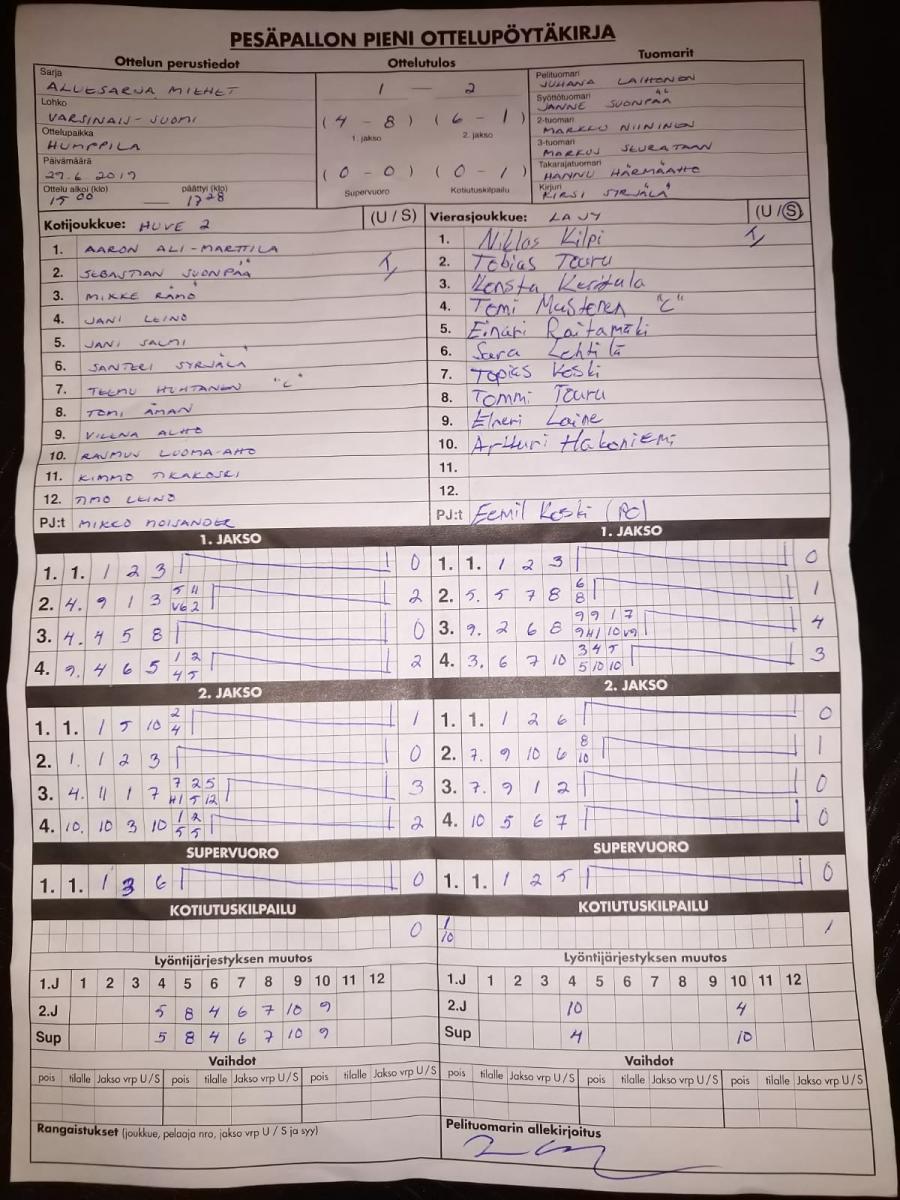 PESÄPALLON PIENI OTTELUPÖYTÄKIRJA
Ottelun perustiedot
Sarja
ALUESARJA MIEHET
Lohko
VARSINAIS-SUOMI
Ottelupaikka
HUMPPILA
Päivämäärä
27.6 2019
Ottelu alkoi (klo) päättyi (klo)
15 00 — 17 28
Ottelutulos
1 — 2
(4 - 8) (6 - 1)
1. jakso 2. jakso
(0 - 0) (0 - 1)
Supervuoro Kotiutuskilpailu
Tuomarit
Pelituomari
JUHANA LAIHONEN
Syöttötuomari
JANNE SUONPÄÄ
2-tuomari
MARKKU NIININEN
3-tuomari
MARKUS SEURATAAN
Takarajatuomari
HANNU HÄRMÄAHO
Kirjuri
KIRSI SYRJÄLÄ
Kotijoukkue: HUVE 2 (U / S)
1. AARON ALI-MARTTILA
2. SEBASTIAN SUONPÄÄ
3. MIKKE RÄMÖ
4. JANI LEINO
5. JANI SALMI
6. SANTERI SYRJÄLÄ
7. TEEMU HUHTANEN "C"
8. TOMI ÅMAN
9. ALHO
10. RASMUS LUOMA-AHO
11. KIMMO TIKAKOSKI
12. TIMO LEINO
PJ:t MIKKO MOISANDER
Vierasjoukkue: LAJY (U / S)
1. Niklas Kilpi
2. Tobias Touru
3. Kerttula
4. Tomi Mustonen "C"
5. Einari Raitamäki
6. Sara Lehtilä
7. Topias Koski
8. Tommi Touru
9. Elmeri Laine
10. Artturi Hakoniemi
11.
12.
PJ:t Eemil Koski (PC)
1. JAKSO
1. 1. 1 2 3 0
2. 4. 9 1 3 5 11 V6 2 2
3. 4. 4 5 8 0
4. 9. 4 6 5 1 2 4 5 2
1. JAKSO
1. 1. 1 2 3 0
2. 5. 5 7 8 6 8 1
3. 9. 2 6 8 9 9 1 7 9 H1 10 V9 4
4. 3. 6 7 10 3 4 5 5 10 10 3
2. JAKSO
1. 1. 1 5 10 2 4 1
2. 1. 1 2 3 0
3. 4. 11 1 7 7 2 5 H1 5 12 3
4. 10. 10 3 10 1 2 5 5 2
2. JAKSO
1. 1. 1 2 6 0
2. 7. 9 10 6 8 10 1
3. 7. 9 1 2 0
4. 10 5 6 7 0
SUPERVUORO
1. 1. 1 3 6 0
SUPERVUORO
1. 1. 1 2 5 0
KOTIUTUSKILPAILU
0
KOTIUTUSKILPAILU
1 10 1
Lyöntijärjestyksen muutos
1.J 1 2 3 4 5 6 7 8 9 10 11 12
2.J 5 8 4 6 7 10 9
Sup 5 8 4 6 7 10 9
Lyöntijärjestyksen muutos
1.J 1 2 3 4 5 6 7 8 9 10 11 12
2.J 10 4
Sup 4 10
Vaihdot
pois tilalle Jakso vrp U / S pois tilalle Jakso vrp U / S pois tilalle Jakso vrp U / S
Vaihdot
pois tilalle Jakso vrp U / S pois tilalle Jakso vrp U / S pois tilalle Jakso vrp U / S
Rangaistukset (joukkue, pelaaja nro, jakso vrp U / S ja syy)
Pelituomarin allekirjoitus